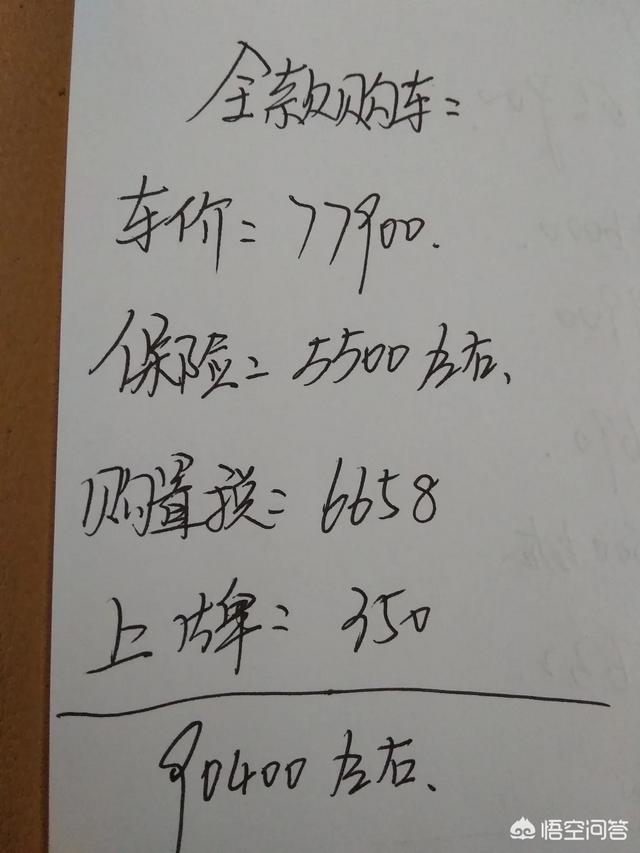 全款购车：
车价：77900.
保险：5500左右、
购置税：6658
上牌：350
90400左右、
悟空问答